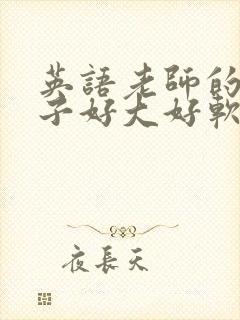 英語老師的
子好大好軟
夜長天